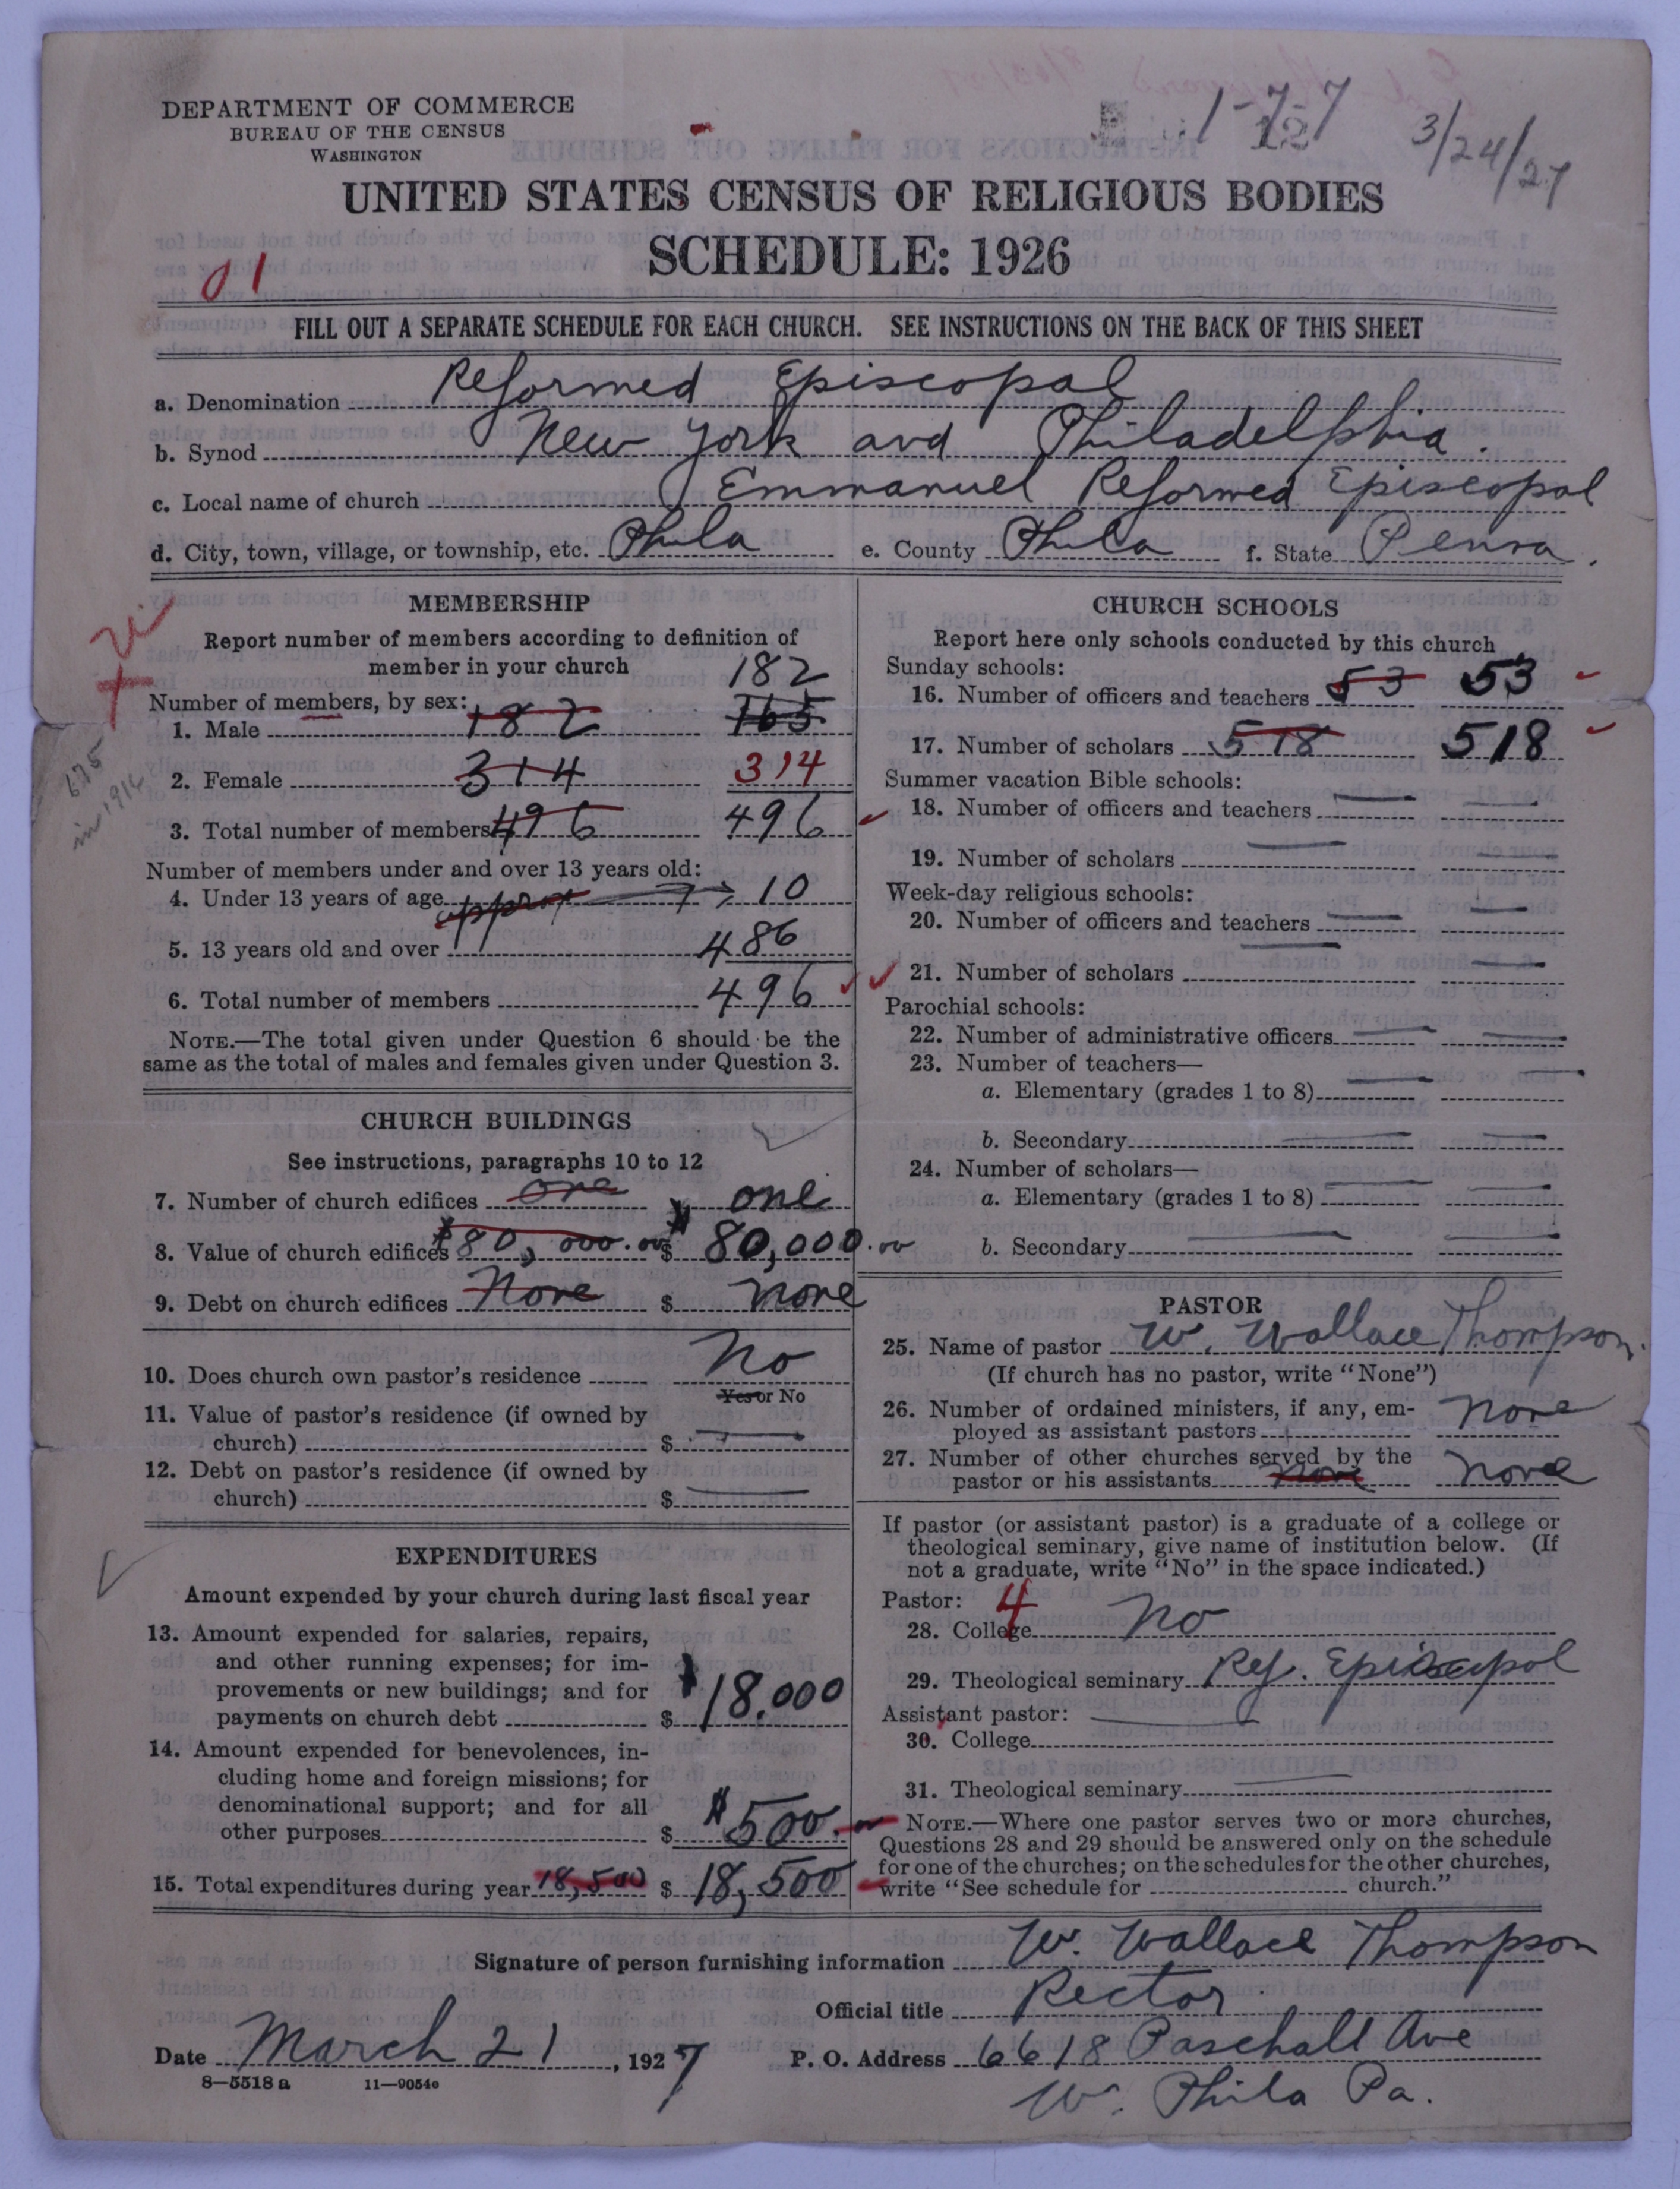 DEPARTMENT OF COMMERCE
BUREAU OF THE CENSUS
WASHINGTON
1-7-7
12
3/24/27
UNITED STATES CENSUS OF RELIGIOUS BODIES
SCHEDULE: 1926
01
FILL OUT A SEPARATE SCHEDULE FOR EACH CHURCH. SEE INSTRUCTIONS ON THE BACK OF THIS SHEET
a. Denomination Reformed Episcopal
b. Synod New York and Philadelphia.
c. Local name of church Emmanuel Reformed Episcopal
d. City, town, village, or township, etc. Phila e. County Phila f. State Penna.
MEMBERSHIP
Report number of members according to definition of
member in your church 182
Number of members, by sex:
1. Male 182 165
2. Female 314 314
675
in 1916
3. Total number of members 496 496
Number of members under and over 13 years old:
4. Under 13 years of age approx 10
5. 13 years old and over 486
6. Total number of members 496
NOTE.—The total given under Question 6 should be the
same as the total of males and females given under Question 3.
CHURCH BUILDINGS
See instructions, paragraphs 10 to 12
7. Number of church edifices one one
8. Value of church edifices $80,000.00 $ 80,000.00
9. Debt on church edifices None $ none
10. Does church own pastor's residence No
Yes or No
11. Value of pastor's residence (if owned by
church) $
12. Debt on pastor's residence (if owned by
church) $
EXPENDITURES
Amount expended by your church during last fiscal year
13. Amount expended for salaries, repairs,
and other running expenses; for im-
provements or new buildings; and for
payments on church debt $ $18,000
14. Amount expended for benevolences, in-
cluding home and foreign missions; for
denominational support; and for all
other purposes $ $500.00
15. Total expenditures during year 18,500 $ 18,500
CHURCH SCHOOLS
Report here only schools conducted by this church
Sunday schools:
16. Number of officers and teachers 53 53
17. Number of scholars 518 518
Summer vacation Bible schools:
18. Number of officers and teachers
19. Number of scholars
Week-day religious schools:
20. Number of officers and teachers
21. Number of scholars
Parochial schools:
22. Number of administrative officers
23. Number of teachers—
a. Elementary (grades 1 to 8)
b. Secondary
24. Number of scholars—
a. Elementary (grades 1 to 8)
b. Secondary
PASTOR
25. Name of pastor W. Wallace Thompson.
(If church has no pastor, write "None")
26. Number of ordained ministers, if any, em-
ployed as assistant pastors none
27. Number of other churches served by the
pastor or his assistants none none
If pastor (or assistant pastor) is a graduate of a college or
theological seminary, give name of institution below. (If
not a graduate, write "No" in the space indicated.)
Pastor: 4
28. College No
29. Theological seminary Ref. Episcopal
Assistant pastor:
30. College
31. Theological seminary
NOTE.—Where one pastor serves two or more churches,
Questions 28 and 29 should be answered only on the schedule
for one of the churches; on the schedules for the other churches,
write "See schedule for church."
Signature of person furnishing information W. Wallace Thompson
Official title Rector
Date March 21, 1927 P. O. Address 6618 Paschall Ave
8—5518 a 11—9054c
W. Phila Pa.